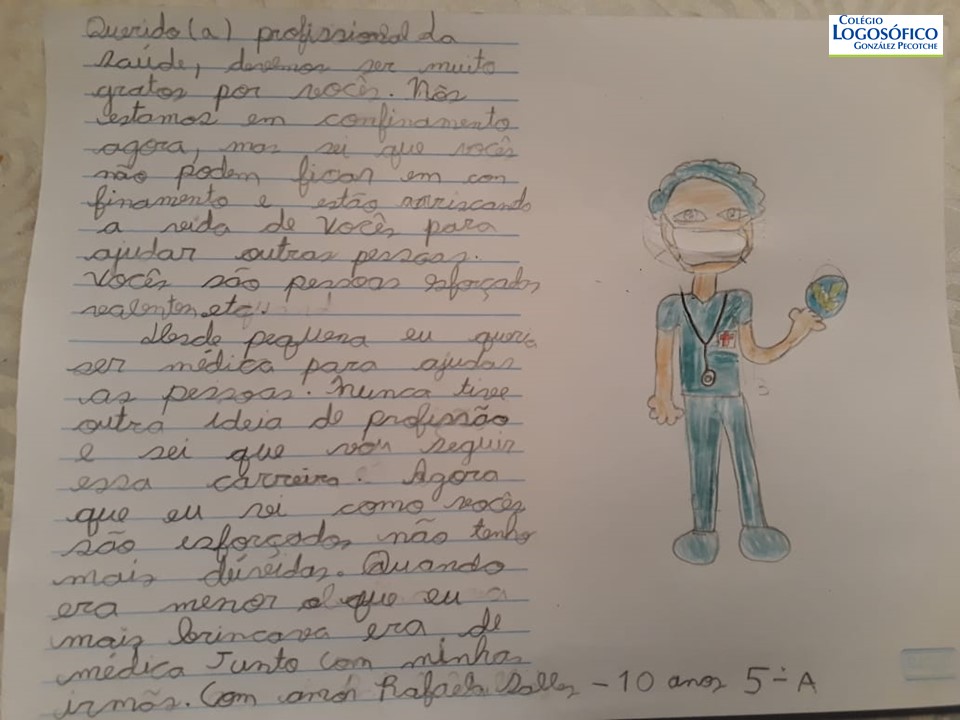 COLÉGIO
LOGOSÓFICO
GONZÁLEZ PECOTCHE
Querido(a) profissional da
saúde, devemos ser muito
gratos por vocês. Nós
estamos em confinamento
agora, mas sei que vocês
não podem ficar em con
finamento e estão arriscando
a vida de vocês para
ajudar outras pessoas.
Vocês são pessoas esforçadas
valentes, etc..
Desde pequena eu queria
ser médica para ajudar
as pessoas. Nunca tive
outra ideia de profissão
e sei que vou seguir
essa carreira. Agora
que eu sei como vocês
são esforçados não tenho
mais dúvidas. Quando
era menor o que eu
mais brincava era de
médica junto com minhas
irmãs. Com amor Rafaela Salles - 10 anos 5º A